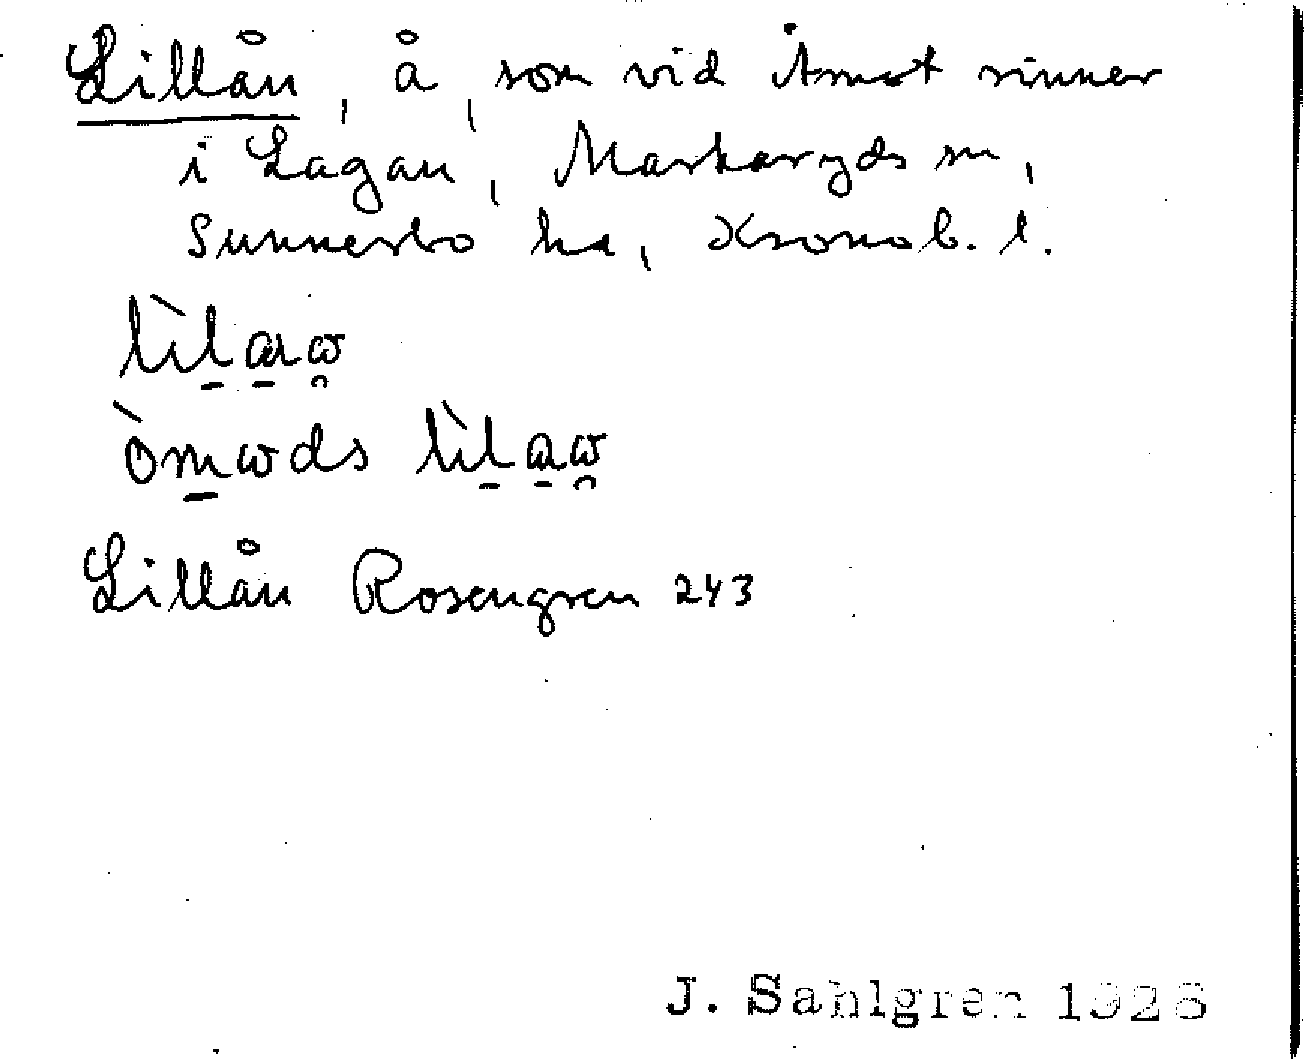 Lillån, å, som vid Åmot rinner
i Lagan, Markaryds sn,
Sunnerbo hd, Kronob. l.
Lillån Rosengren 243
J. Sahlgren 1928